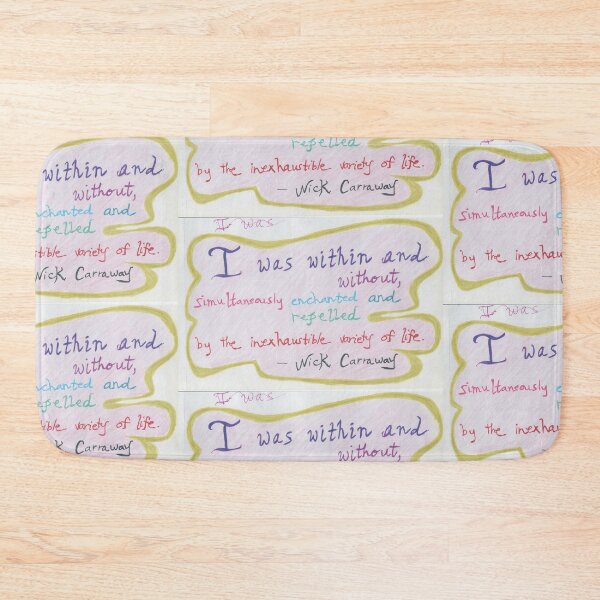 within and
without,
enchanted and
repelled
tible variety of life.
Nick Carraway
within and
without,
nchanted and
repelled
tible variety of life.
Nick Carraway
repelled
by the inexhaustible variety of life.
– Nick Carraway
I was
I was within and
without,
simultaneously enchanted and
repelled
by the inexhaustible variety of life.
– Nick Carraway
I was
I was within and
without,
I was
simultaneously e
by the inexhaus
I was
I was
simultaneously e
by the inexhaus